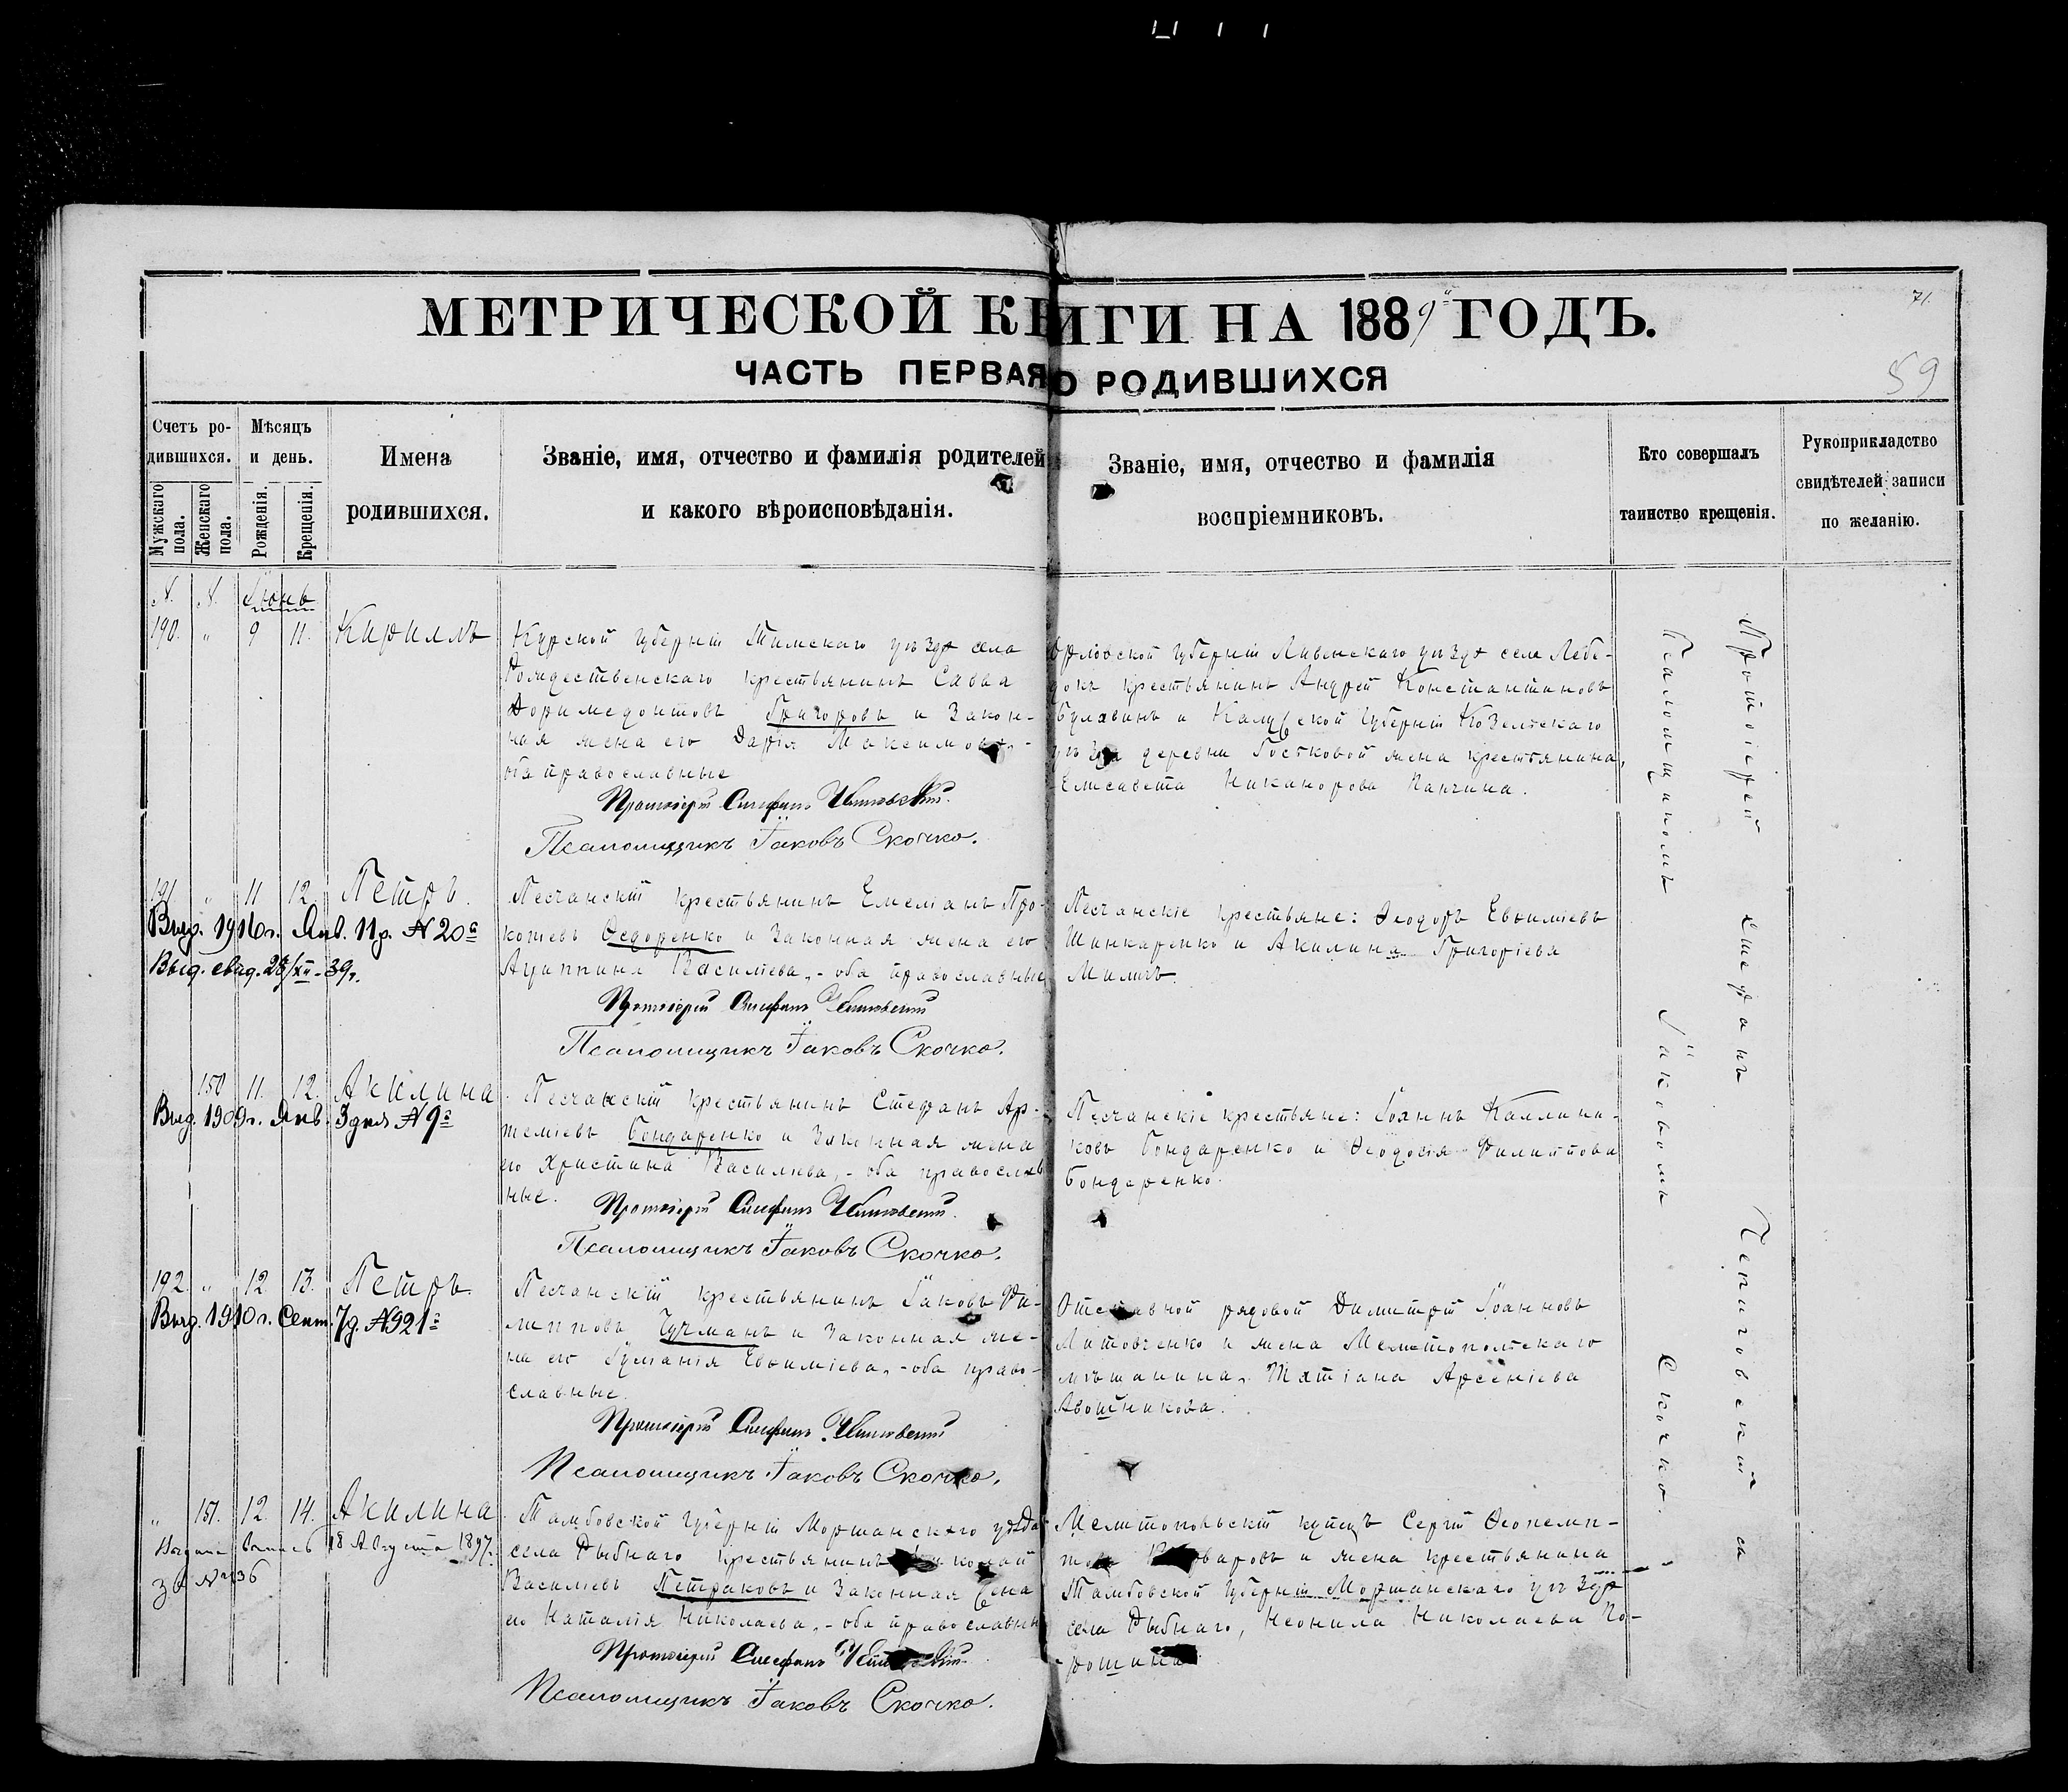 71.
МЕТРИЧЕСКОЙ КНИГИ НА 1889й ГОДЪ.
59
ЧАСТЬ ПЕРВАЯ О РОДИВШИХСЯ
Счетъ ро-
дившихся.
Мужскаго пола.
Женскаго пола.
Мѣсяцъ
и день.
Рожденія.
Крещенія.
Имена
родившихся.
Званіе, имя, отчество и фамилія родителей
и какого вѣроисповѣданія.
Званіе, имя, отчество и фамилія
воспріемниковъ.
Кто совершалъ
таинство крещенія.
Рукоприкладство
свидѣтелей записи
по желанію.
№. №. Іюнь
190. " 9 11. Кириллъ
Курской губерніи Тимскаго уѣзда села
Рождественскаго крестьянинъ Савва
Доримедонтовъ Григоровъ и закон-
ная жена его Дарія Максимова,-
оба православные
Протоіерей Стефанъ
Псаломщикъ Іаковъ Скочко.
Орловской губерніи Ливенскаго уѣзда села Лебе-
докъ крестьянинъ Андрей Константиновъ
Булавинъ и Калужской губерніи Козельскаго
уѣзда деревни жена крестьянина,
Елисавета Никанорова
191 " 11 12. Петръ.
Выд. 1916 г. Янв. 11 д. № 20й
Выд. свид. 28/XII-39г.
Песчанскій крестьянинъ Емеліанъ Про-
копіевъ Ѳедоренко и законная жена его
Агриппина Василіева,- оба православные
Протоіерей Стефанъ
Псаломщикъ Іаковъ Скочко.
Песчанскіе крестьяне: Ѳеодоръ Евѳиміевъ
Шинкаренко и Акилина Григоріева
150 11. 12. Акилина
Выд. 1909 г. Янв. 3 дня № 9й
Песчанскій крестьянинъ Стефанъ Ар-
теміевъ Бондаренко и законная жена
его Христина Василіева,- оба православ
ные.
Протоіерей Стефанъ
Псаломщикъ Іаковъ Скочко.
Песчанскіе крестьяне: Іоаннъ Каллини-
ковъ Бондаренко и Ѳеодосія Филиппова
Бондаренко.
192. " 12. 13. Петръ.
Выд. 1910 г. Сент. 7 д. № 921й
Песчанскій крестьянинъ Іаковъ Фи-
липповъ Гучманъ и законная же-
на его Іуліанія Евѳиміева,- оба право-
славные.
Протоіерей Стефанъ
Псаломщикъ Іаковъ Скочко.
Отставной рядовой Димитрій Іоанновъ
Литовченко и жена Мелитопольскаго
мѣщанина, Татіана Арсеніева
" 151. 12. 14. Акилина
18 Августа 1897.
за № 136
Тамбовской губерніи Моршанскаго уѣзда
села Рыбнаго крестьянинъ Николай
Василіевъ Петраковъ и законная жена
его Наталія Николаева,- оба православные
Протоіерей Стефанъ
Псаломщикъ Іаковъ Скочко.
Мелитопольскій купецъ Сергій Ѳеопемп-
товъ и жена крестьянина
Тамбовской губерніи Моршанскаго уѣзда
села Рыбнаго, Неонила Николаева
Протоіерей Стефанъ съ
Псаломщикомъ Іаковомъ Скочко.